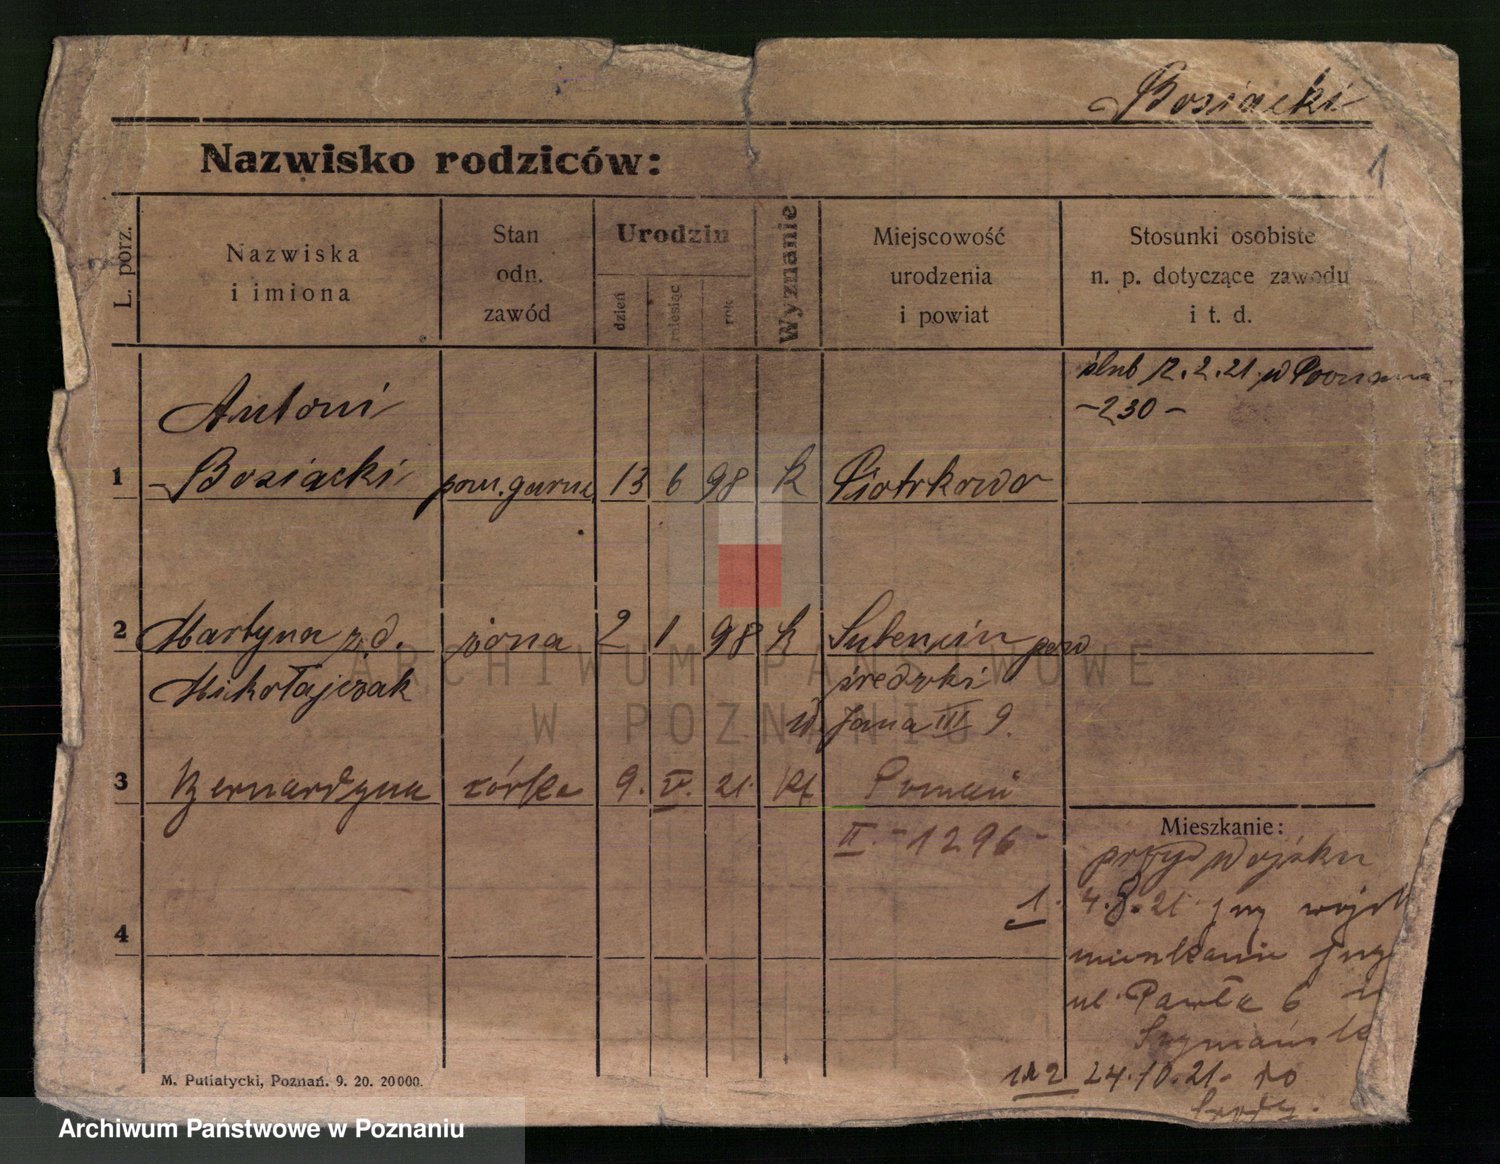 Bosiacki
Nazwisko rodziców:
1
L. porz.
Nazwiska
i imiona
Stan
odn.
zawód
Urodzin
dzień
miesiąc
rok
Wyznanie
Miejscowość
urodzenia
i powiat
Stosunki osobiste
n. p. dotyczące zawodu
i t. d.
ślub 12.2.21 w Poznaniu
-230-
1 Antoni
Bosiacki 13 6 98 k Piotrkowo
2 Martyna z d. żona 2 1 98 k pow
Mikołajczak średzki
Jana III 9.
3 Bernardyna córka 9. V. 21. Kt Poznań
II. -1296-
Mieszkanie:
przy wojsku
1. 4.8.21 przy wojsk
4 mieszkanie przy
ul. Pawła 6
1 i 2 24.10.21. do
Środy.
M. Putiatycki, Poznań. 9. 20. 20000.
ARCHIWUM PAŃSTWOWE
W POZNANIU
Archiwum Państwowe w Poznaniu